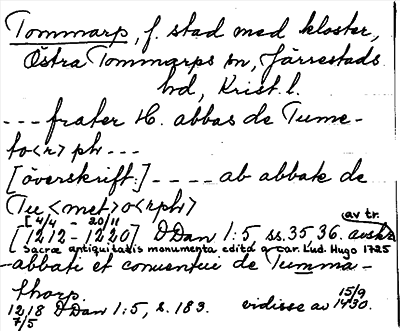 Tommarp, f. stad med kloster,
Östra Tommarps sn, Järrestads
hd, Krist. l.
--- frater H. abbas de Tume-
to<r>ph ---
[överskrift:] ---- ab abbate de
Tu<met>o<rph>
[4/4 20/11 av tr.
[1212-1220] DDan 1:5 ss. 35 36. avskr
Sacræ antiquitatis monumenta edita a car. Lud. Hugo 1725
-abbati et conuentui de Tumma-
thorp.
1218 DDan 1:5, s. 183. vidisse av 15/9 1430.
7/5